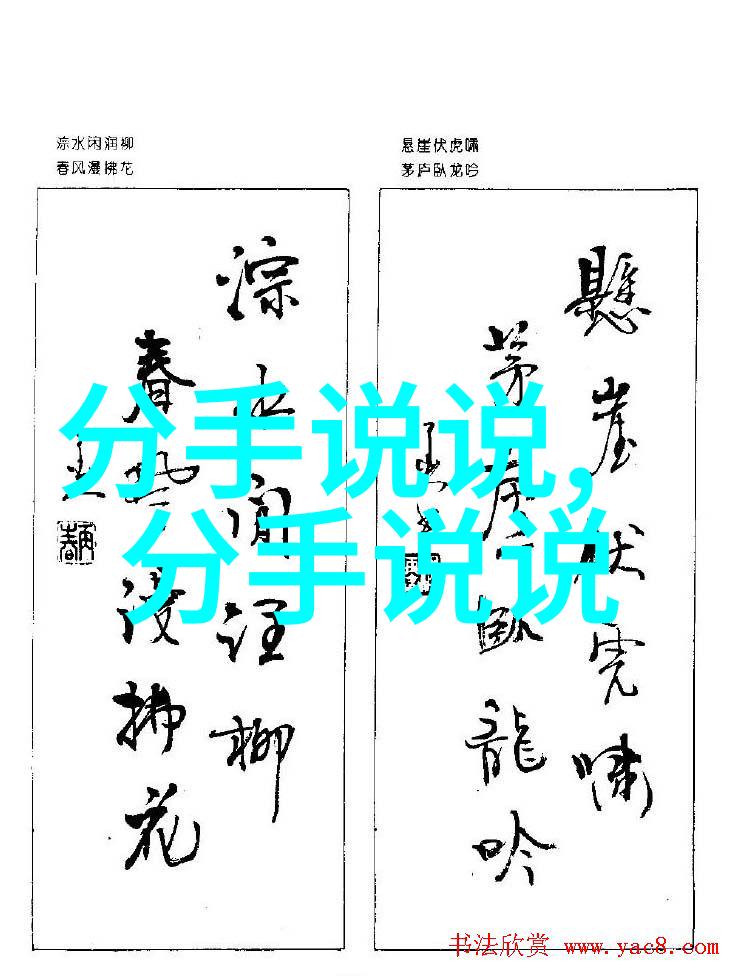 淙水闲润柳
春风漫拂花
悬崖伏虎嘯
茅庐卧龙吟
懸崖伏虎嘯
茅庐卧龍吟
淙水闲润柳
春风漫拂花
分手说说,
分手说说
书法欣赏 www.yac8.com